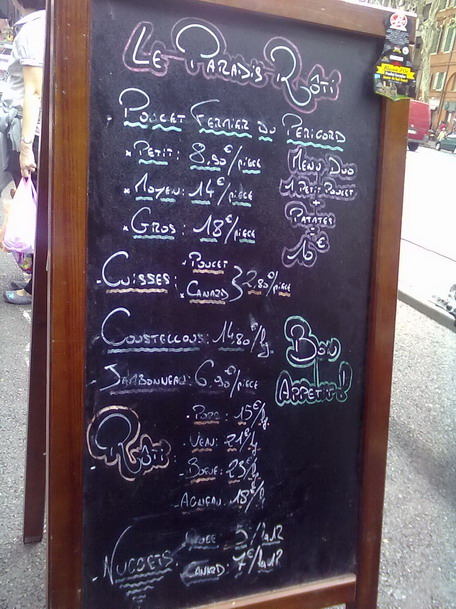 LE PARADIS RÔTI
POULET FERMIER DU PÉRIGORD
* PETIT: 8,90€/PIECE
* MOYEN: 14€/PIECE
* GROS: 18€/PIECE
MENU DUO
1 PETIT POULET
+
PATATES
=
16€
- CUISSES: * POULET * CANARD } 2,80/PIECE
COUSTELLOUS: 14,80€/Kg
- JAMBONNEAU: 6,90€/PIECE
BON
APPETIT!
- RÔTI:
- PORC: 15€/Kg
- VEAU: 21€/Kg
- BOEUF: 25€/Kg
- AGNEAU: 18€/Kg
- NUGGETS
CANARD: 7€/